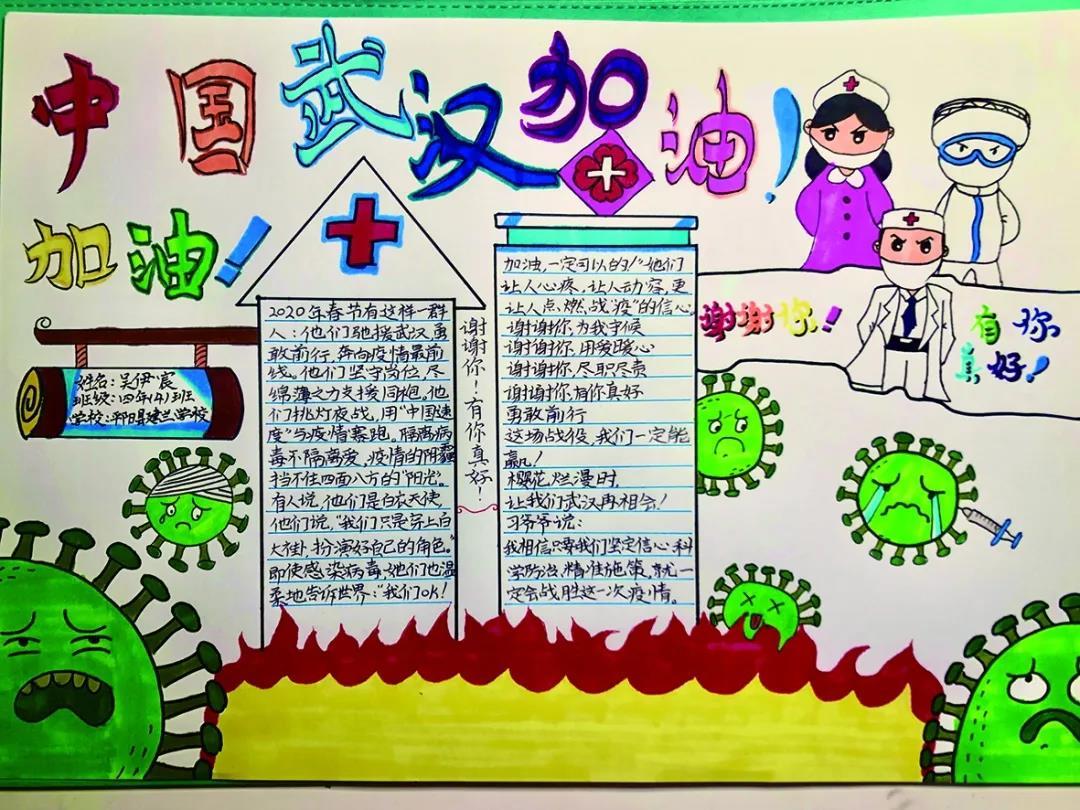 中国武汉加油！
加油！
姓名：吴伊宸
班级：四年(4)班
学校：平阳县建兰学校
2020年春节有这样一群
人：他们驰援武汉，勇
敢前行，奔向疫情最前
线。他们坚守岗位，尽
绵薄之力支援同袍。他
们挑灯夜战，用“中国速
度”与疫情赛跑。隔离病
毒不隔离爱，疫情的阴霾
挡不住四面八方的“阳光”。
有人说，他们是白衣天使，
他们说，“我们只是穿上白
大褂，扮演好自己的角色。”
即使感染病毒，她们也温
柔地告诉世界：“我们OK！
谢谢你！有你真好！
加油，一定可以的！”他们
让人心疼，让人动容，更
让人点燃战“疫”的信心。
谢谢你，为我守候
谢谢你，用爱暖心
谢谢你，尽职尽责
谢谢你，有你真好
勇敢前行
这场战役，我们一定能
赢！
樱花烂漫时，
让我们武汉再相会！
习爷爷说：
我相信只要我们坚定信心，科
学防治，精准施策，就一
定会战胜这一次疫情。
谢谢你！
有你
真好！